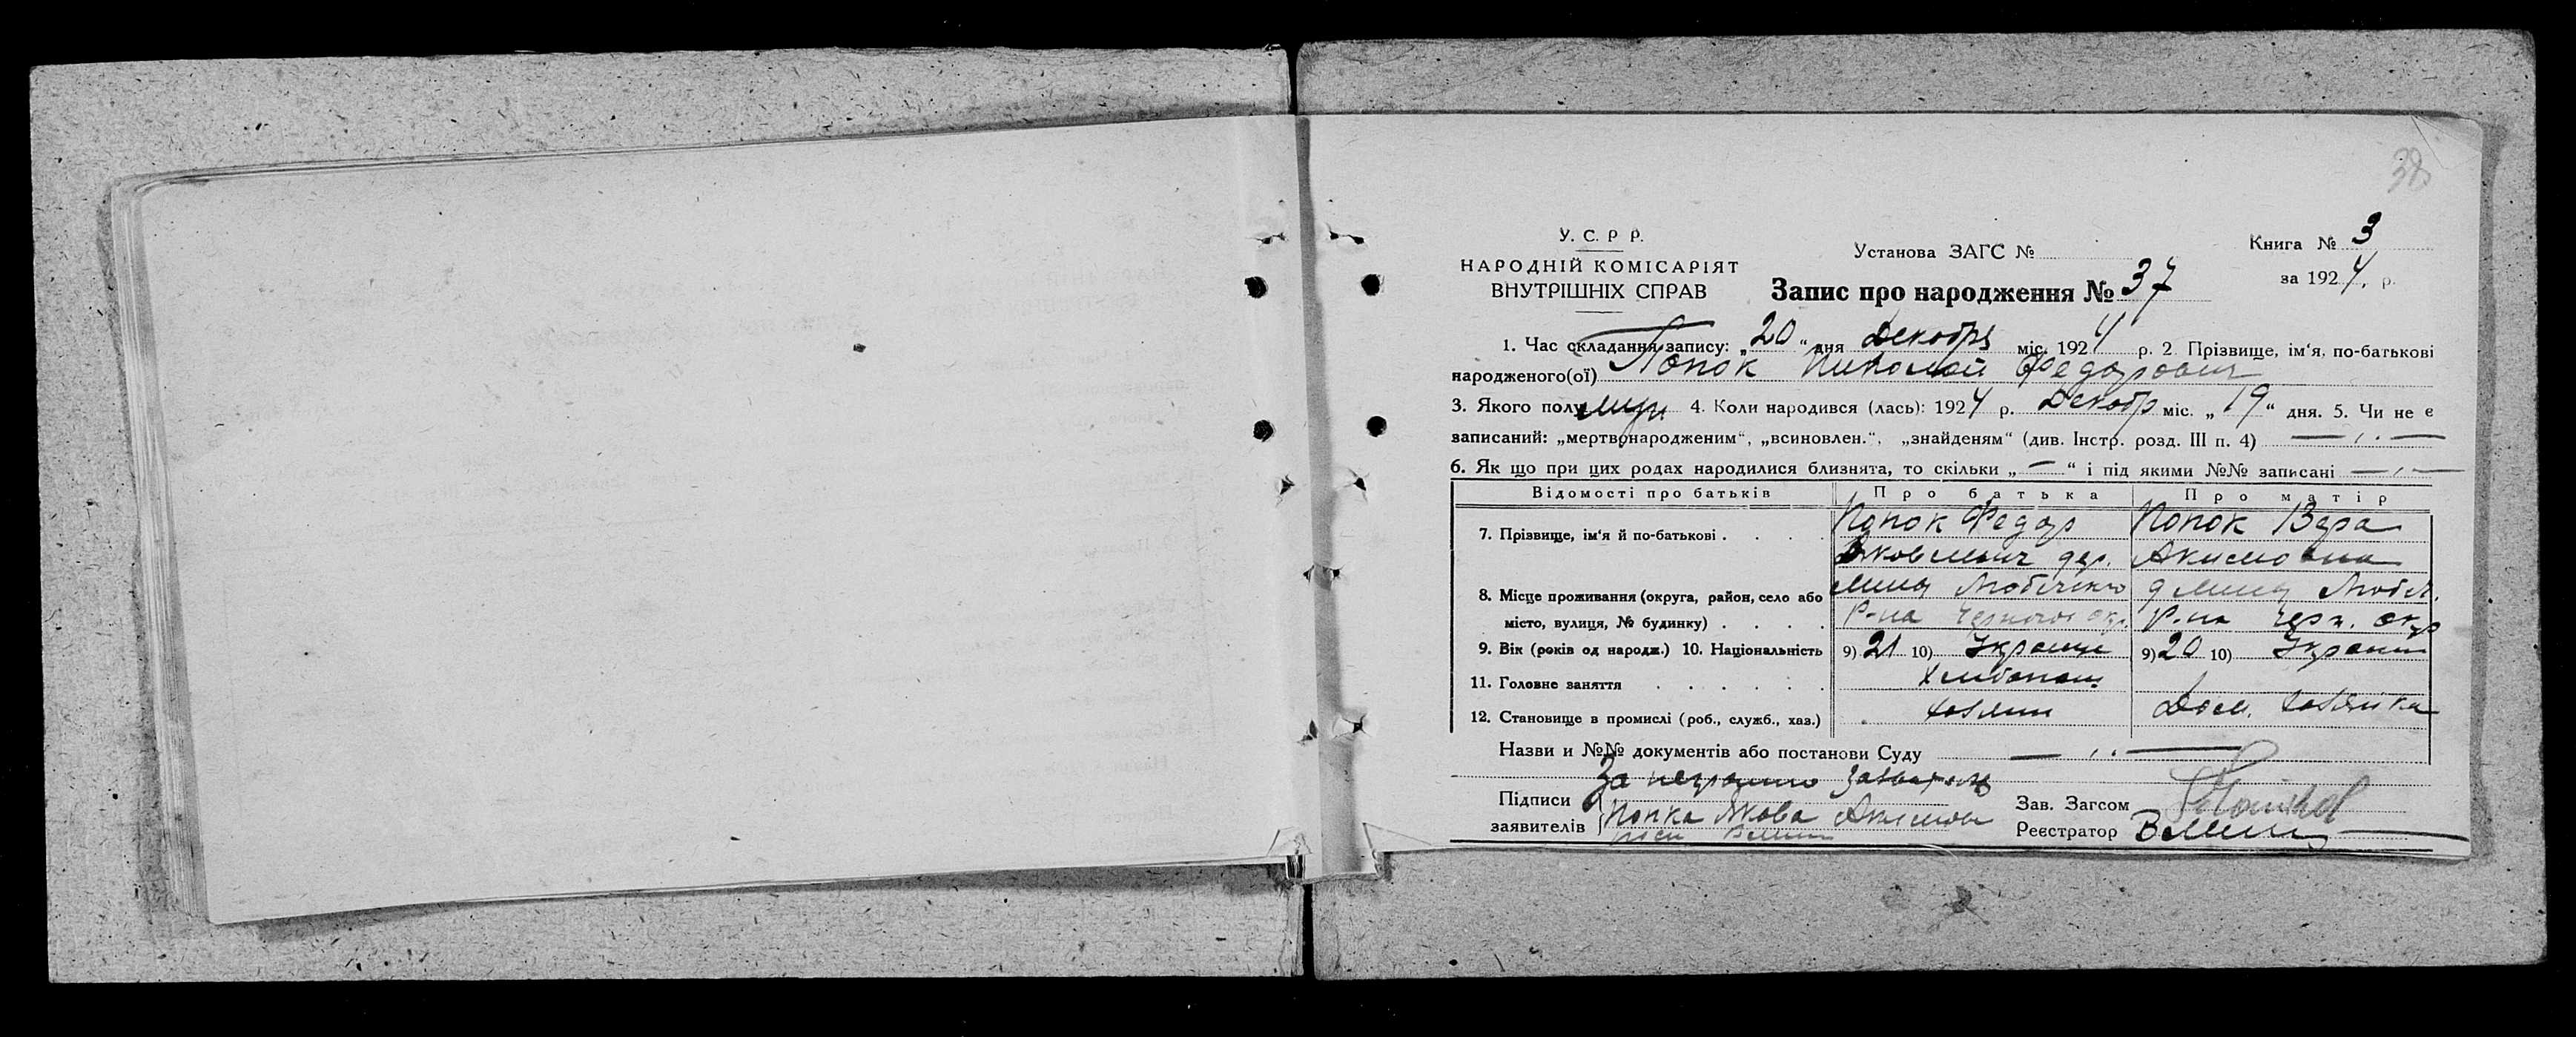 38
У. С. Р Р.
НАРОДНІЙ КОМІСАРІЯТ
ВНУТРІШНІХ СПРАВ
Установа ЗАГС №
Книга № 3
за 1924. р.
Запис про народження № 37
1. Час складання запису: „20“ дня Декобря міс. 1924 р. 2 Прізвище, ім‘я, по-батькові
народженого(ої) Попок Николай Федорович
3. Якого полу муж 4. Коли народився (лась): 1924 р. Декобр міс. „19“ дня. 5. Чи не є
записаний: „мертвонародженим“, „всиновлен.“, „знайденям“ (див. Інстр. розд. III п. 4)
6. Як що при цих родах народилися близнята, то скільки „—“ і під якими №№ записані
Відомості про батьків Про батька Про матір
7. Прізвище, ім‘я й по-батькові . . . . Попок Федор Попок Вера
Яковлевич дер. Акимовна
8. Місце проживання (округа, район, село або
місто, вулиця, № будинку) . . . . Р-на Р-на Черн. окр
9. Вік (років од народж.) 10. Національність 9) 21 10) Украин 9) 20 10) Украин
11. Головне заняття . . . . . . Хлибопаш
12. Становище в промислі (роб., служб., хаз.) хозяин Дом. хозяйка
Назви и №№ документів або постанови Суду
За неграмотно
Підписи
заявителів Попка Якова
Зав. Загсом
Реєстратор